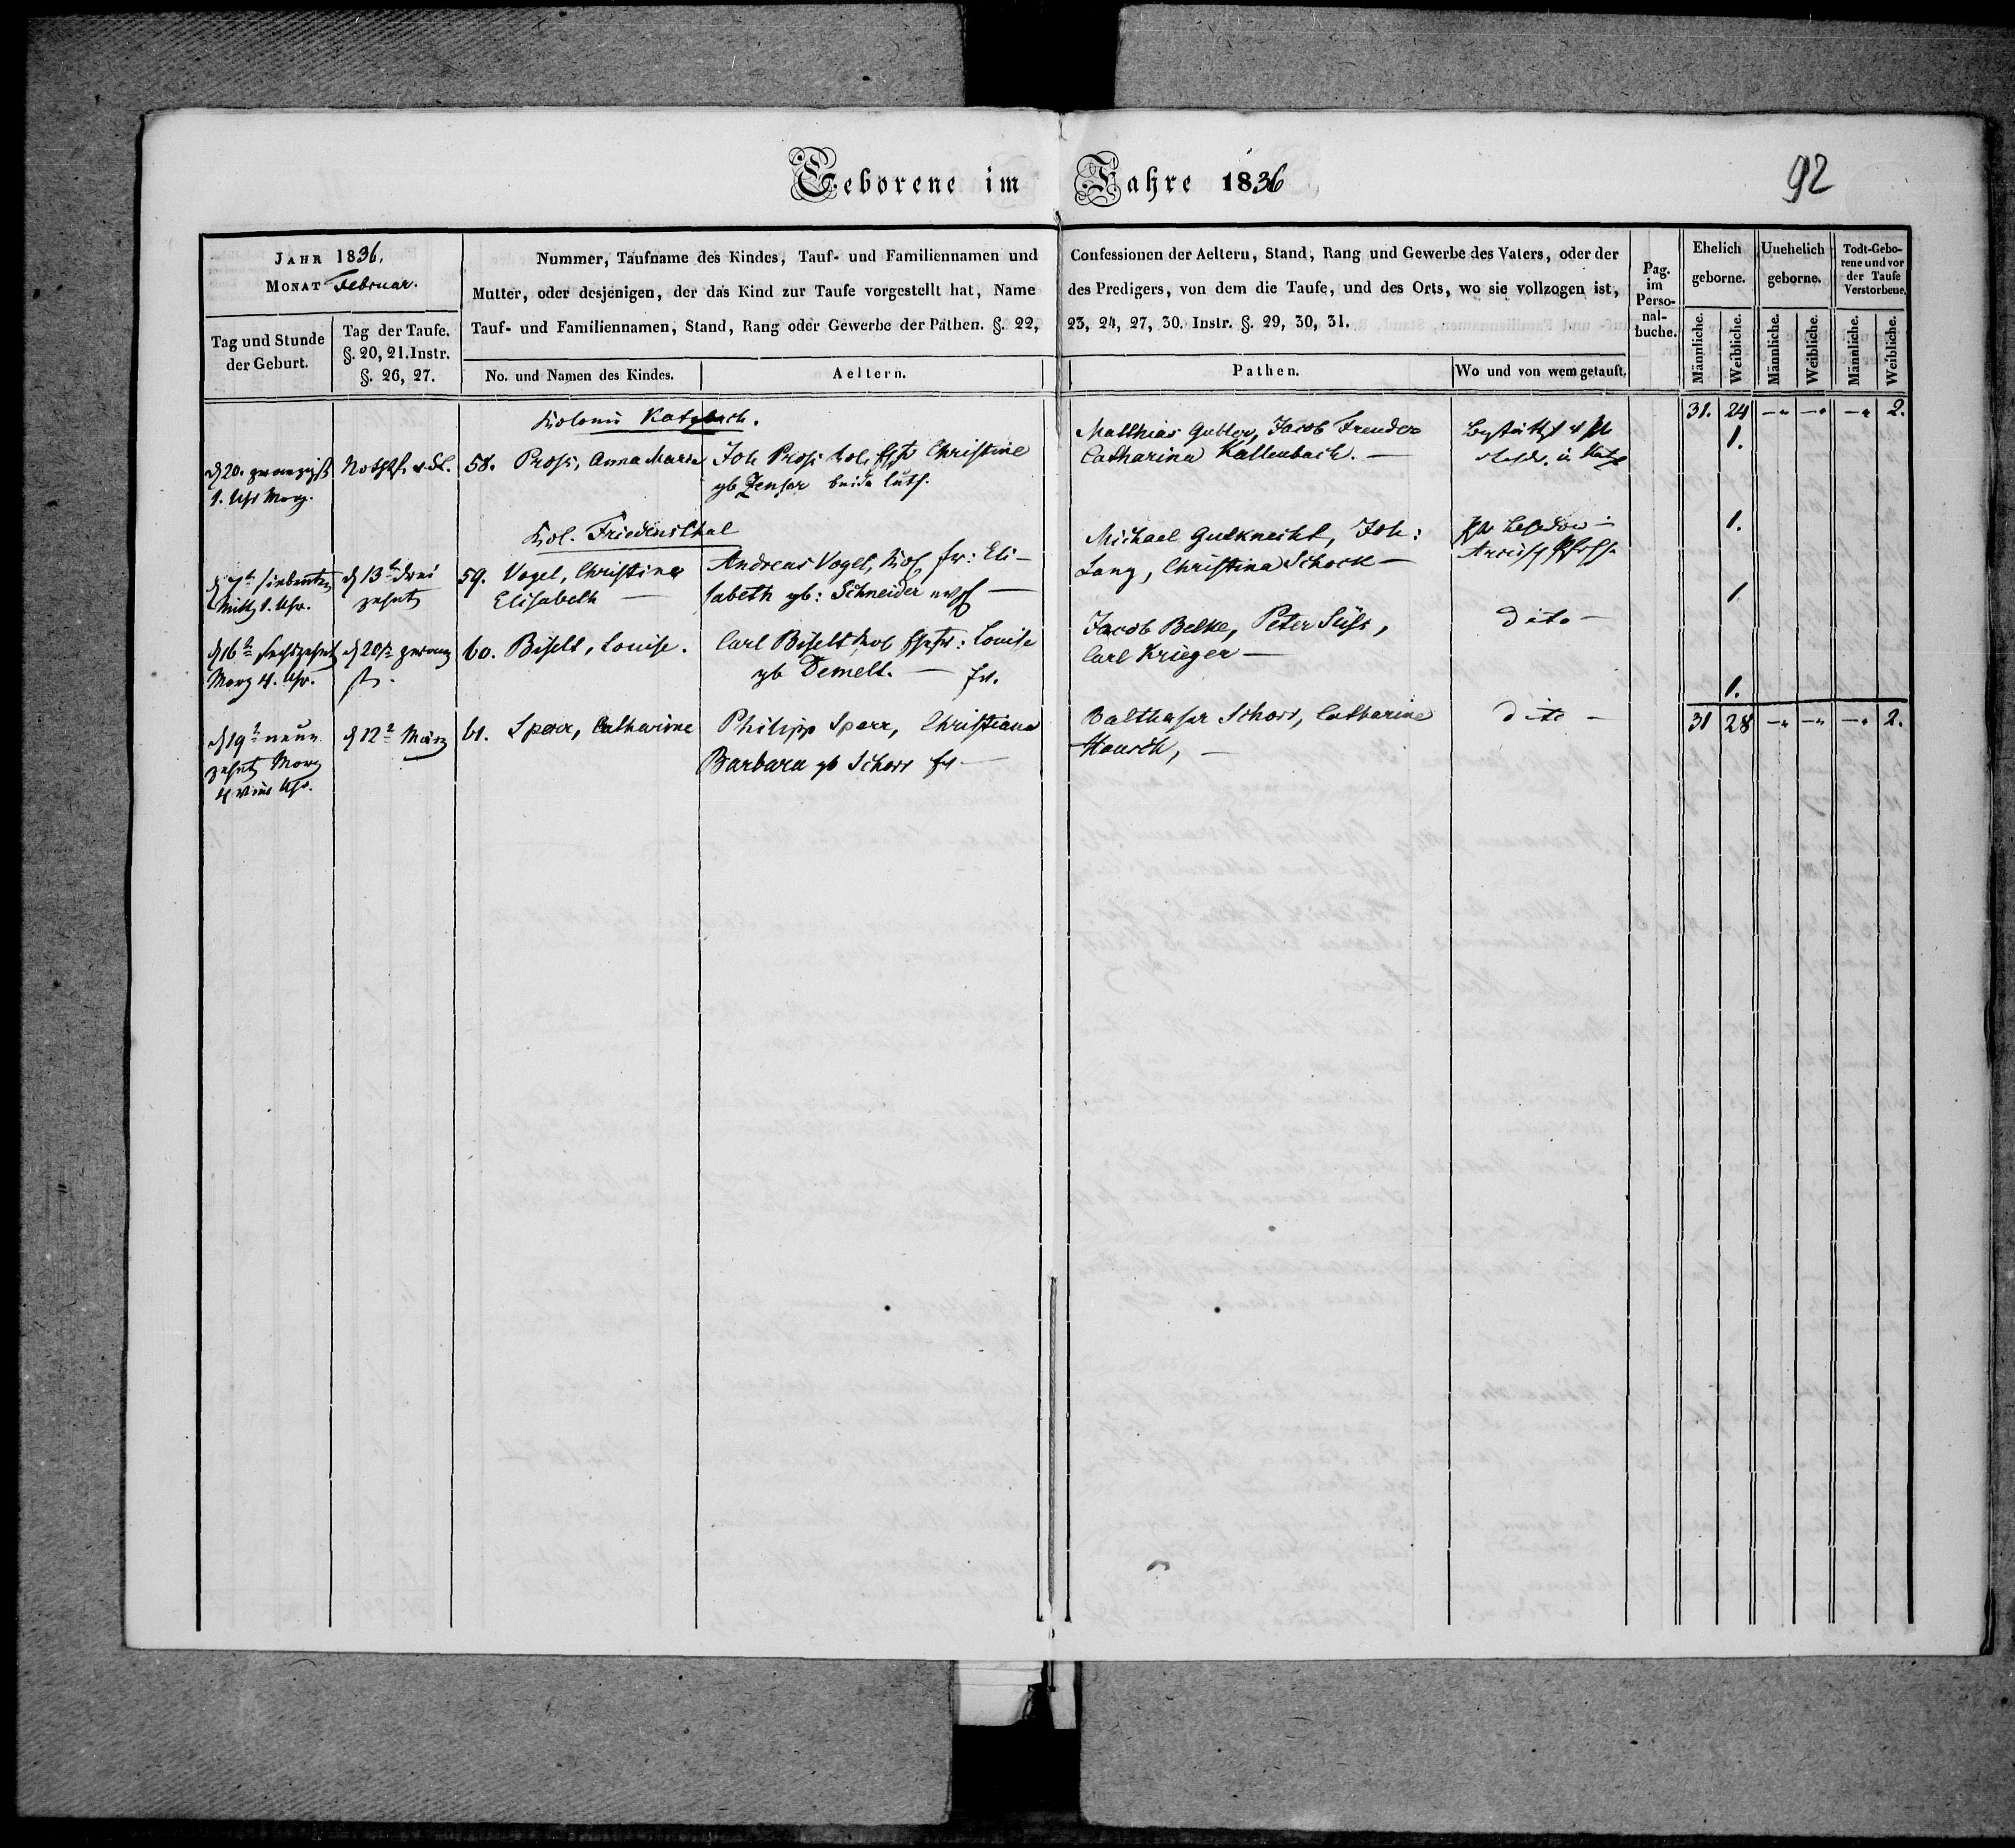 Geborene im Jahre 1836
92
JAHR 1836.
MONAT Februar.
Tag und Stunde
der Geburt.
Tag der Taufe.
§. 20, 21. Instr.
§. 26, 27.
Nummer, Taufname des Kindes, Tauf- und Familiennamen und
Mutter, oder desjenigen, der das Kind zur Taufe vorgestellt hat, Name
Tauf- und Familiennamen, Stand, Rang oder Gewerbe der Pathen. §. 22,
No. und Namen des Kindes.
Aeltern.
Confessionen der Aeltern, Stand, Rang und Gewerbe des Vaters, oder der
des Predigers, von dem die Taufe, und des Orts, wo sie vollzogen ist,
23, 24, 27, 30. Instr. §. 29, 30, 31.
Pathen.
Wo und von wem getauft.
Pag.
im
Perso-
nal-
buche.
Ehelich
geborne.
Unehelich
geborne.
Todt-Gebo-
rene und vor
der Taufe
Verstorbene.
Männliche.
Weibliche.
Männliche.
Weibliche.
Männliche.
Weibliche.
31. 24 -"- -"- -"- 2.
Kolonie Katzbach.
d 20. zwanzigst
1. Uhr Morg.
58. Pross, Anna Maria
Joh Pross Kol. Christine
gb Zenser beide luth.
Matthias Gubler, Jacob Freuder
Catharina Kaltenbach. —
1.
Kol. Friedensthal
d 7t siebenten
Mitt 1. Uhr.
d 13t drei
zehnt
59. Vogel, Christina
Elisabeth —
Andreas Vogel, Eli-
sabeth gb: Schneider
Michael Gutknecht, Joh:
Lang, Christina Schock —
1.
d 16t sechszehnt
Morg 4. Uhr.
d 20st zwanzig
st.
60. Biselt, Louise.
Carl Biselt Kol Louise
gb Demelt. —
Jacob Belke, Peter Süss,
Carl Krieger —
dito —
1.
d 19t neun
zehnt Morg
4 vier Uhr.
d 12t März
61. Sperr, Catharine
Philipp Sperr, Christiana
Barbara gb Schorr
Balthasar Schorr, Catharine
Hausch, —
dito —
1.
31 28 -"- -"- -"- 2.